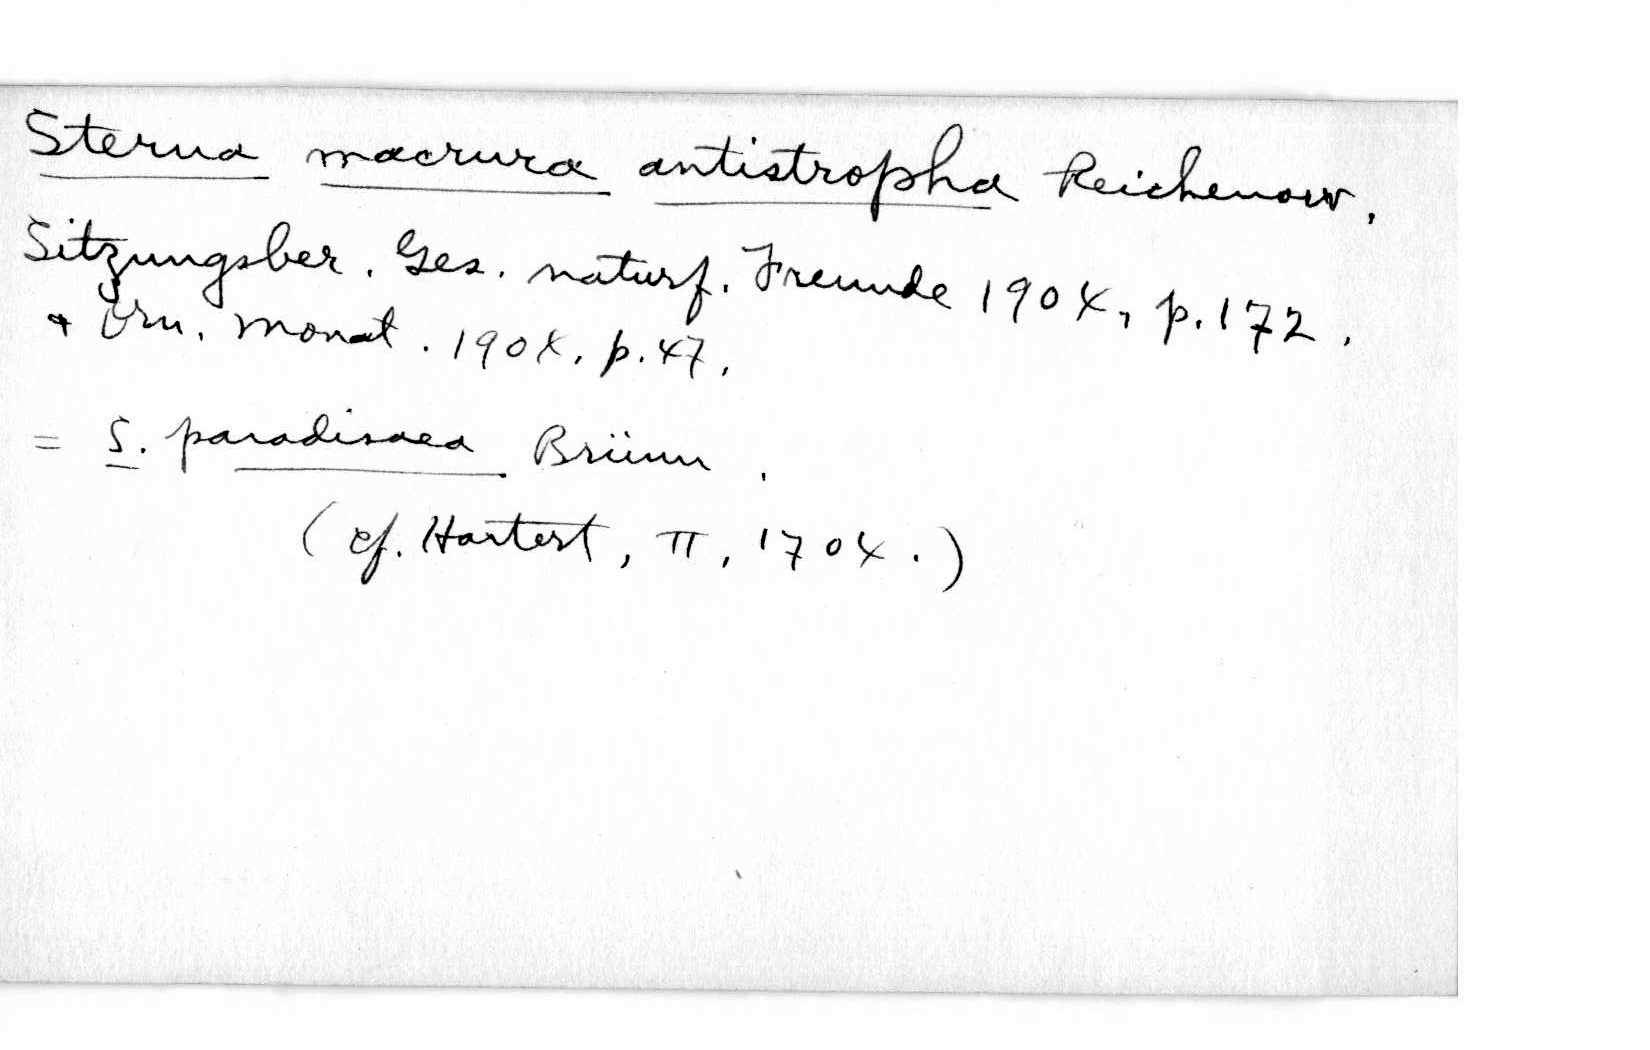 Sterna macrura antistropha Reichenow,
Sitzungsber. Ges. naturf. Freunde 1904, p. 172.
& Orn. Monat. 1904, p. 47.
= S. paradisaea Brünn.
(cf. Hartert, II, 1704.)